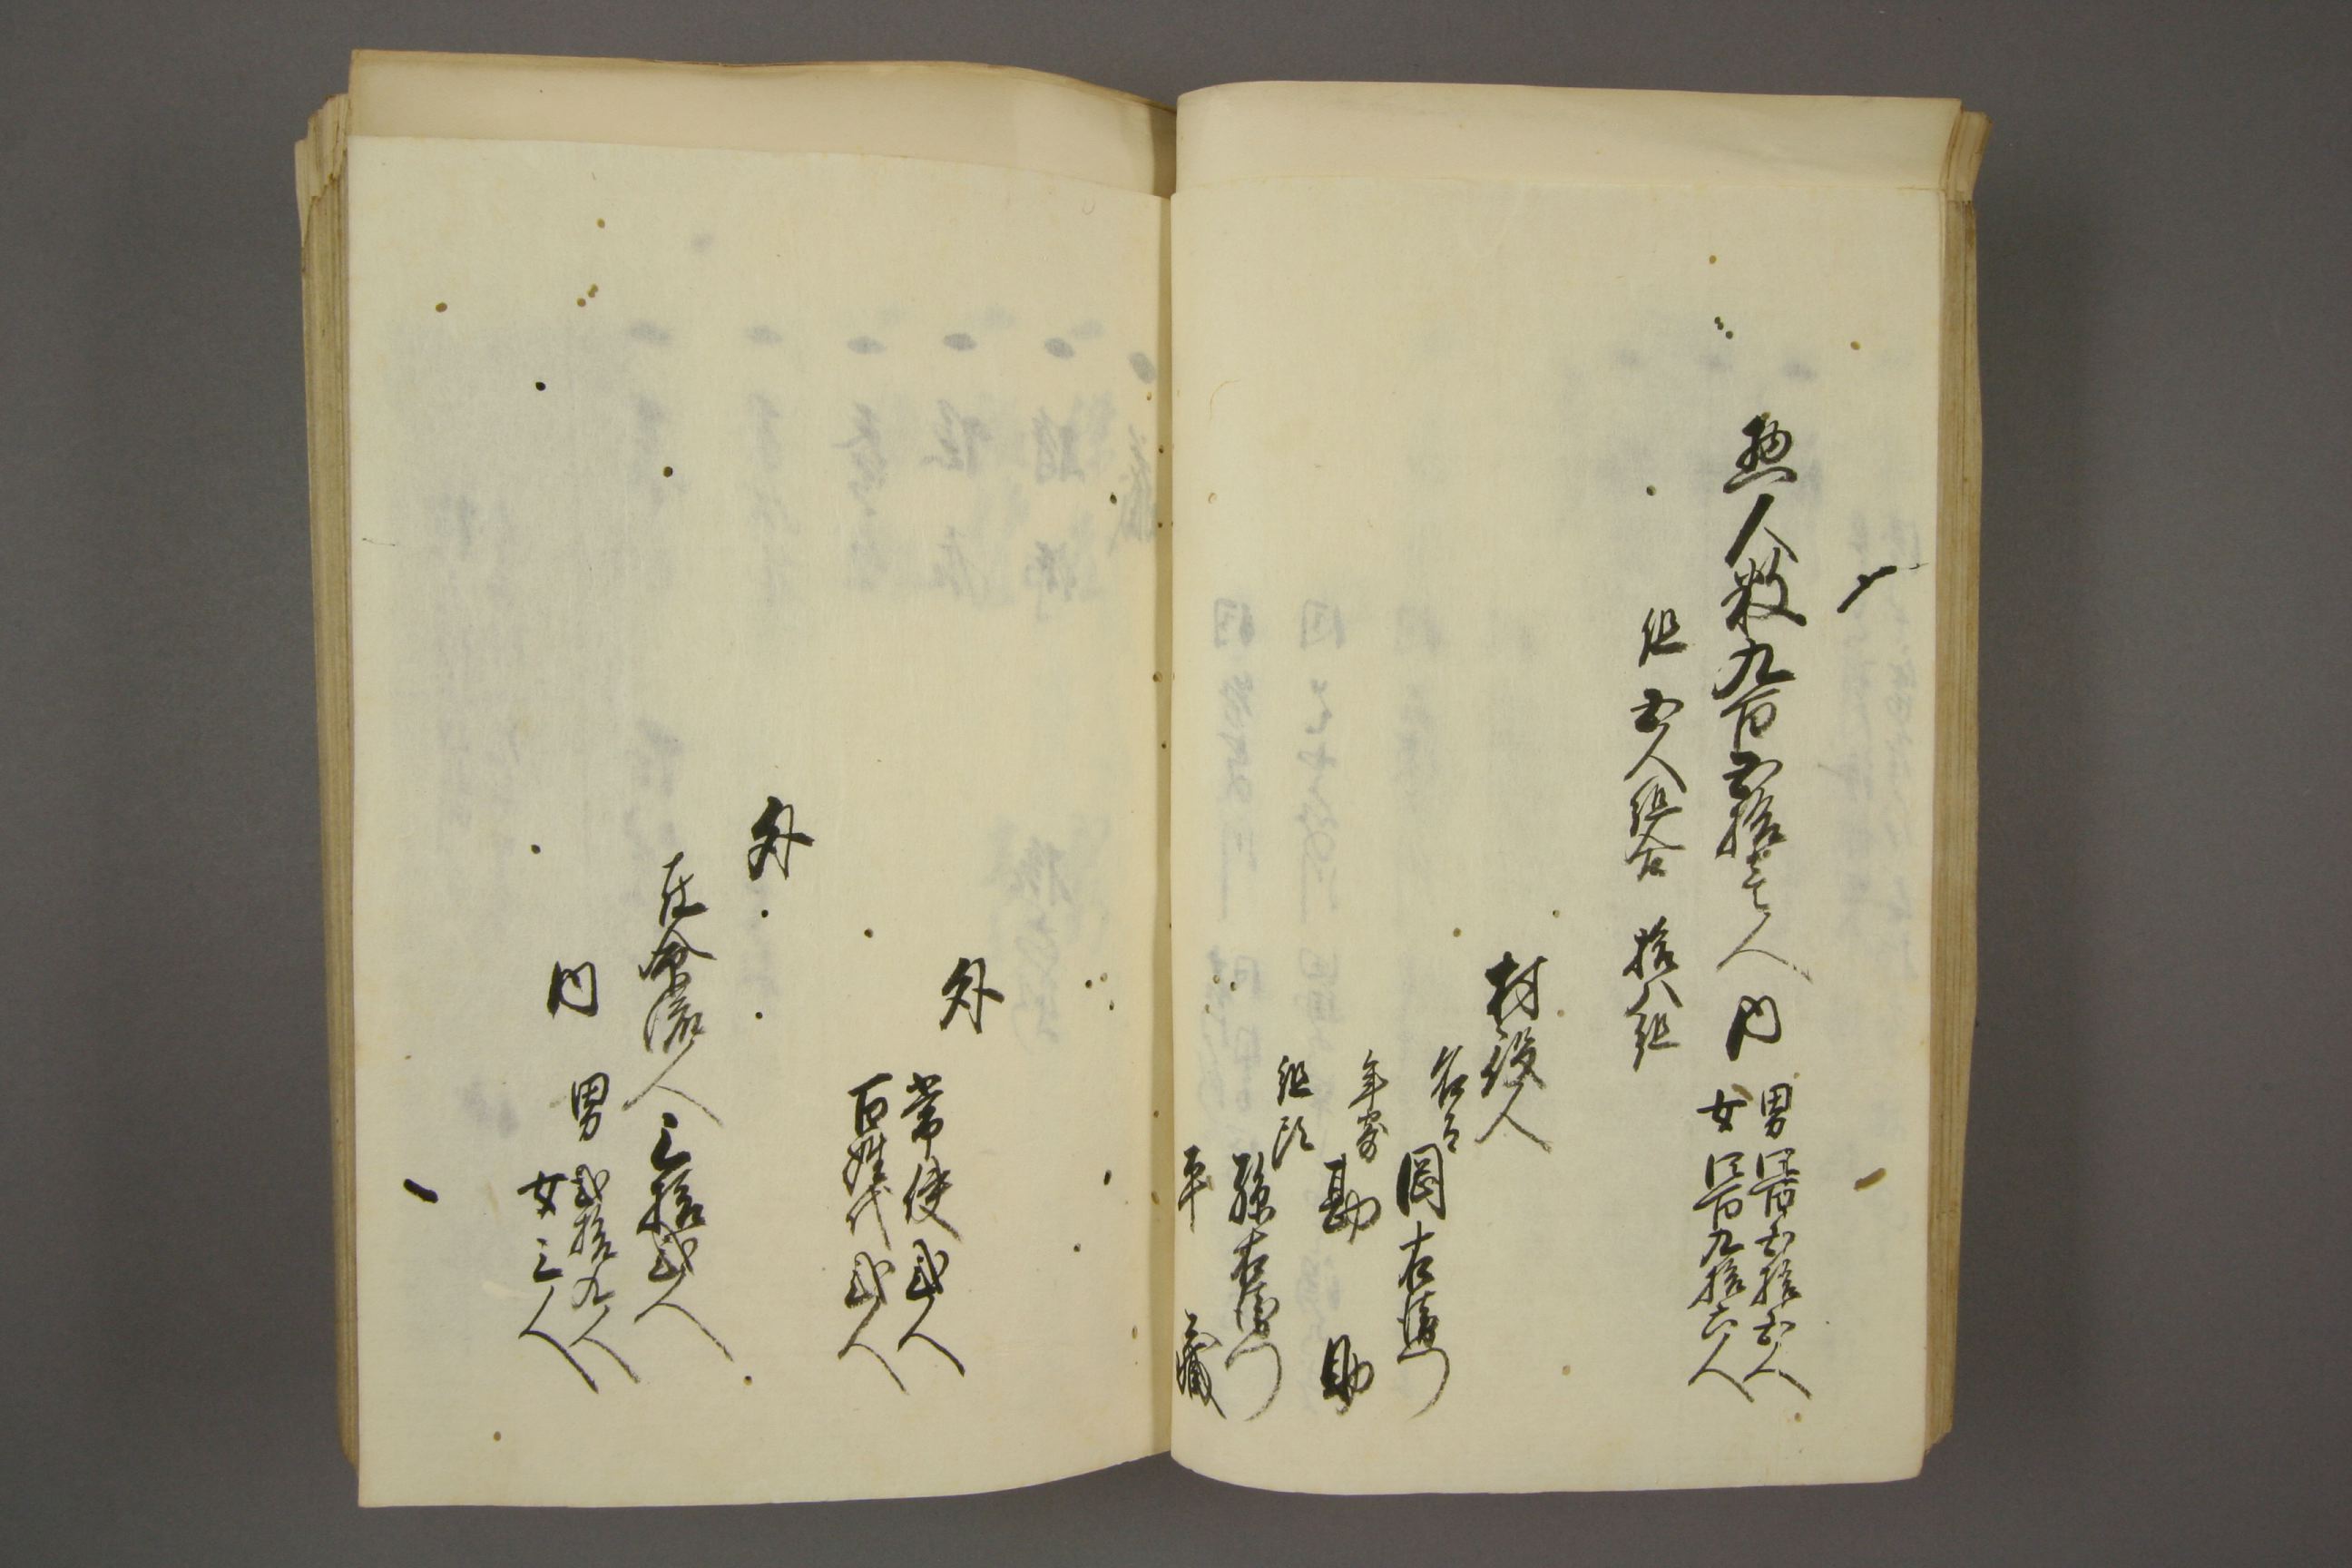 惣人数九百五拾壱人 内 男四百五拾五人
女四百九拾六人
但五人組合 拾八組
村役人
名主 岡右衛門
年寄 勘助
組頭 孫右衛門
平蔵
外
常使弐人
百姓代弐人
外
在命流人三拾弐人
内 男弐拾九人
女三人